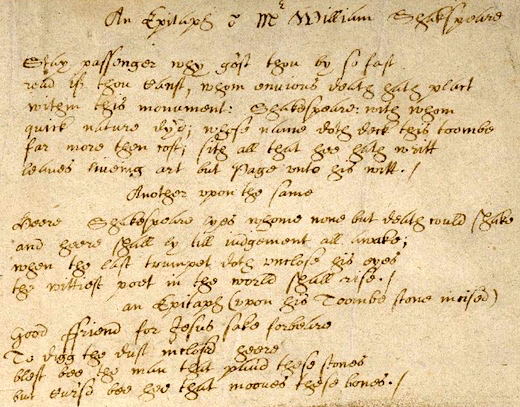 An Epitaph Mr William Shakspeare
Stay passenger why go'st thou by so fast
read if thou canst, whom envious death hath plac't
within this monument: Shakespeare: with whom
quick nature dy'd; whose name doth deck this toombe
far more then cost; sith all that hee hath writt
leaves liveing art but Page unto his witt./
Another upon the same
Heere Shakespeare lyes whome none but death could Shake
and heere shall ly till iudgement all awake;
when the last trumpet doth unclose his eyes
the wittiest poet in the world shall rise./
an Epitaph (upon his Toombe stone incised)
Good ffriend for Iesus sake forbeare
To digg the dust inclos'd heere
blest bee the man that these stones
but curs'd bee hee that mooves these bones./